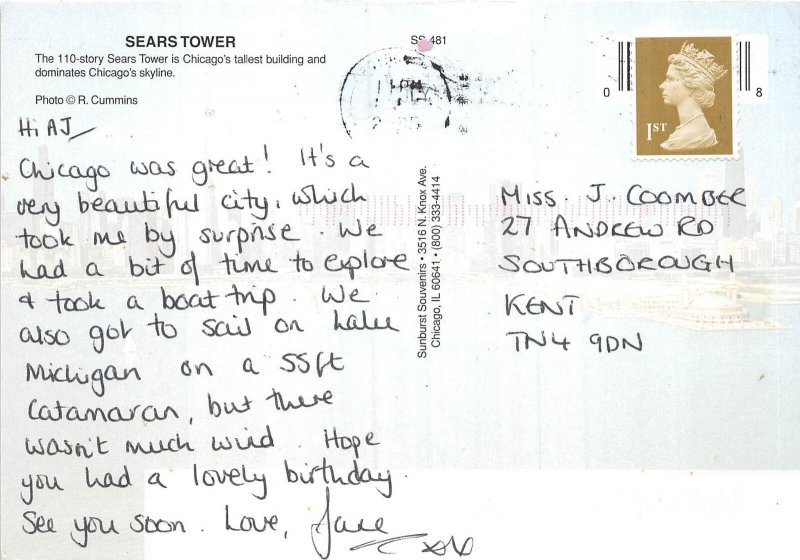 SEARS TOWER
The 110-story Sears Tower is Chicago's tallest building and
dominates Chicago's skyline.
Photo © R. Cummins
SS 481
Hi AJ
Chicago was great! It's a
very beautiful city, which
took me by surprise. We
had a bit of time to explore
& took a boat trip. We
also got to sail on Lake
Michigan on a 55ft
Catamaran, but there
wasn't much wind. Hope
you had a lovely birthday.
See you soon. Love, Jane
xx
Sunburst Souvenirs • 3516 N. Knox Ave.
Chicago, IL 60641 • (800) 333-4414
0 8
1ST
MISS. J. COOMBER
27 ANDREW RD
SOUTHBOROUGH
KENT
TN4 9DN